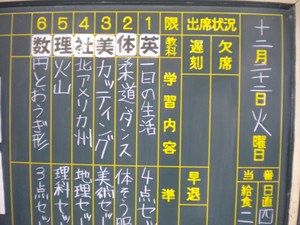 十二月二十二日火曜日
当番
日直 四
給食 二
出席状況
欠席
遅刻
早退
限 教科 学習内容 準
1 英 一日の生活 4点セッ
2 体 柔道・ダンス 体そう服
3 美 カッティング 美術セッ
4 社 北アメリカ州 地理セッ
5 理 火山 理科セッ
6 数 円とおうぎ形 3点セッ